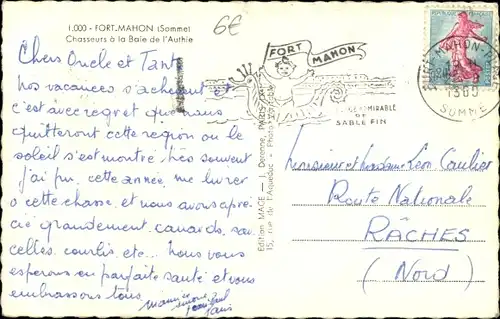 1.000 - FORT-MAHON (Somme)
Chasseurs à la Baie de l'Authie
6€
FORT MAHON
SABLE FIN
SOMME
Edition MAGE — J. Deronne, PARIS
15, rue de l'Aqueduc - Photo véritable
Chers Oncle et Tante
nos vacances s'achèvent et
c'est avec regret que nous
quitterons cette région ou le
soleil s'est montré très souvent
j'ai pu, cette année, me livrer
a cette chasse, et nous avons appré-
cié grandement canards, sar-
celles, courlis, etc... Nous vous
espérons en parfaite santé et vous
embrassons tous
Monsieur et Madame Léon Caulier
Route Nationale
RÂCHES
(Nord)